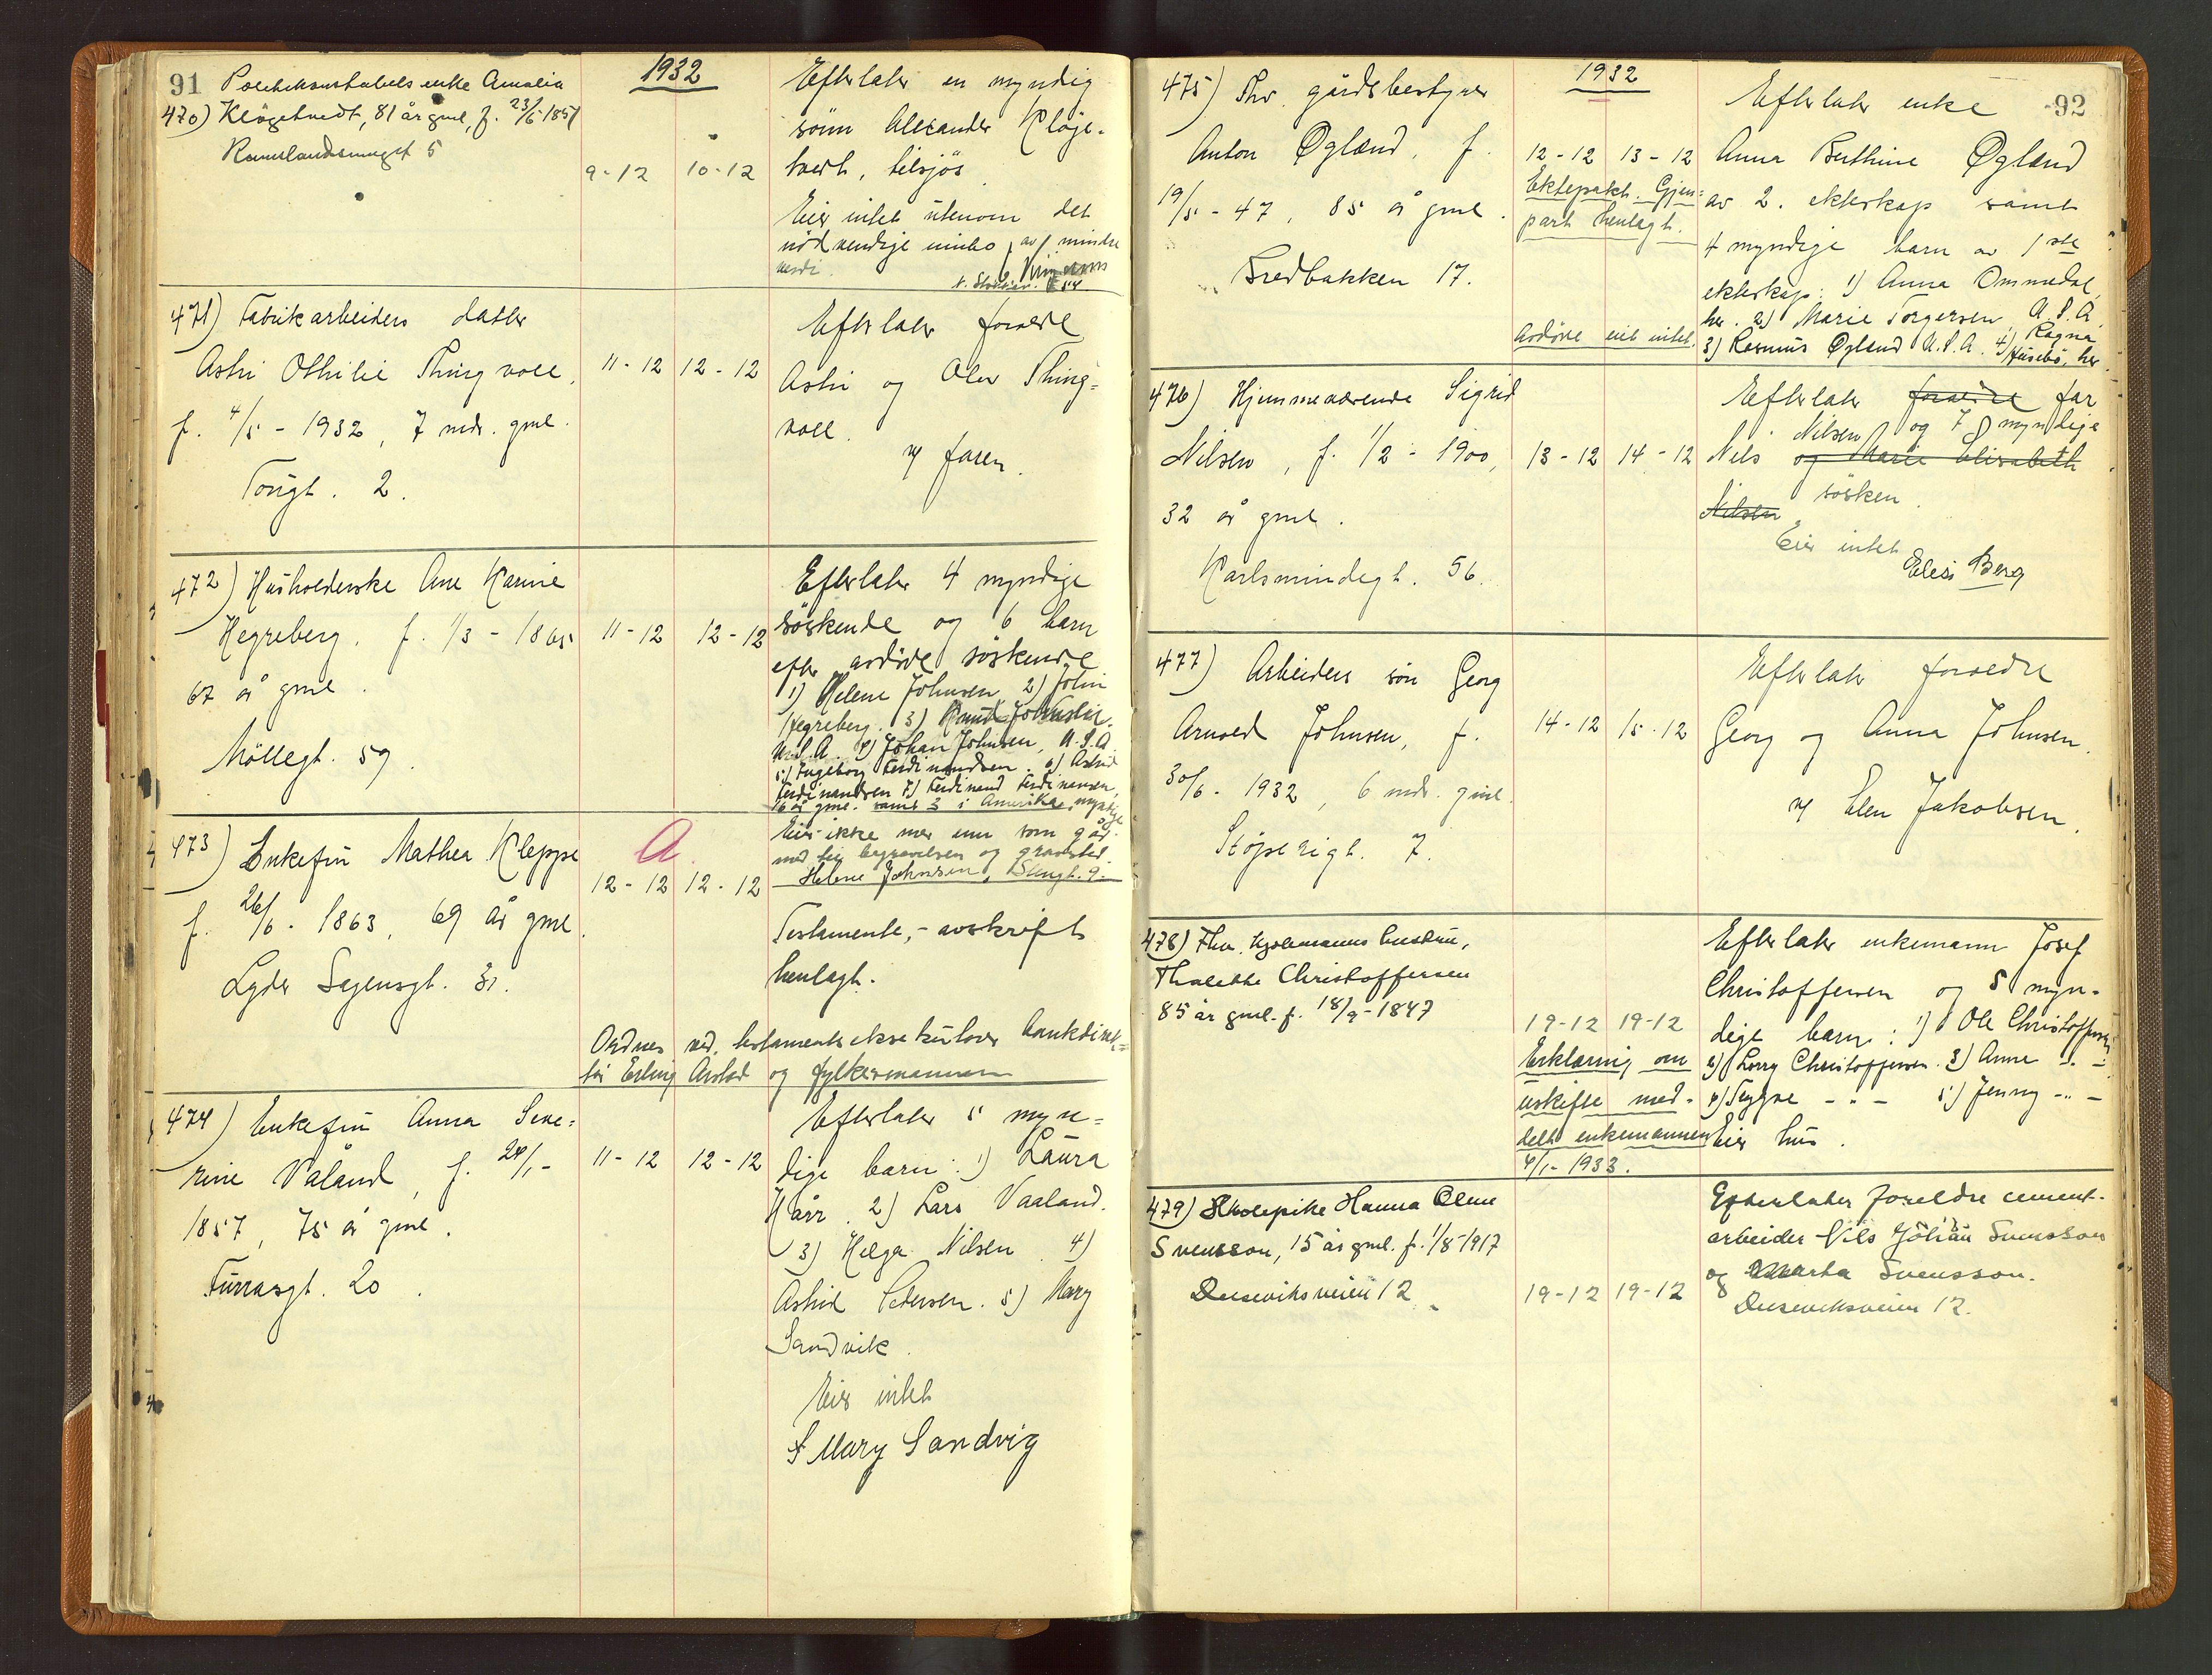 91
1932
Politikonstabels enke Amalia
470) Kløgetvedt, 81 år gml, f. 23/5 1851
5
9-12 10-12
Efterlater en myndig
sønn Alexander Kløge-
tvedt, tilsjøs
Eier intet utenom det
nødvendige innbo av mindre
verdi.
471) Fabrikarbeiders datter
Astri Othilie Thingvoll,
f. 4/5 - 1932, 7 mdr. gml.
Torigt. 2.
11-12 12-12
Efterlater foreldre
Astri og Olav Thing=
voll.
v/ faren.
472) Husholderske Ane Karine
Hegreberg, f. 1/3 - 1865
67 år gml.
Møllegt. 59.
11-12 12-12
Efterlater 4 myndige
søskende og 6 barn
efter avdøde søskende
1) Helene Johnsen 2) John
Hegreberg. 3) Knud
U.S.A. 4) Johan Johnsen, U.S.A.
5) Ingeborg Ferdinandsen. 6) Astrid
Ferdinandsen 7) Ferdinand Ferdinansen,
16 år gml. samt 3 i Amerika, myndige
Eier ikke mer enn som går
med til begravelsen og gravsted.
Helene Johnsen, Stengt. 9.
473) Enkefru Mathea Kleppe
f. 26/6 - 1863, 69 år gml.
Lyder Sagensgt. 31.
A.
12-12 12-12
Testamente, - avskrift
henlagt.
Ordnes ved testamentseksekutorer bankdirek=
tør Erling Aastad og fylkesmannen
474) Enkefru Anna Seve=
rine Våland, f. 24/1 -
1857, 75 år gml.
Furrasgt. 20.
11-12 12-12
Efterlater 5 myn=
dige barn: 1) Laura
Hårr. 2) Lars Vaaland.
3) Helga Nilsen 4)
Astrid Petersen. 5) Mary
Sandvik.
Eier intet
Mary Sandvig
92
1932
475) Fhv. gårdsbestyrer
Anton Øglænd, f.
19/5 - 47, 85 år gml.
Bredbakken 17.
12-12 13-12
Ektepakt. Gjen=
part henlagt.
Avdøde eiet intet.
Efterlater enke
Anna Berthine Øglænd
av 2. ekteskap samt
4 myndige barn av 1ste
ekteskap: 1) Anna Ommedal,
her. 2) Marie Torgersen, U.S.A.
3) Rasmus Øglænd U.S.A. 4) Ragna
Husebø, her.
476) Hjemmeværende Sigrid
Nilsen, f. 1/2 - 1900,
32 år gml.
Karlsmindegt. 56.
13-12 14-12
Efterlater foreldre far
Nilsen og 7 myndige
Nils og Marie Elisabeth
Nilsen søsken.
Eier intet
Elesi Berg
477) Arbeiders søn Georg
Arnold Johnsen, f.
30/6 - 1932, 6 mdr. gml.
Støperigt. 7.
14-12 15-12
Efterlater foreldre
Georg og Anna Johnsen.
v/ Elen Jakobsen.
478) Fhv. hustru,
Thalette Christoffersen
85 år gml. f. 18/9 - 1847
19-12 19-12
Erklæring om
uskifte med-
delt enkemannen
4/1 - 1933.
Efterlater enkemann Josef
Christoffersen og 5 myn-
dige barn: 1) Ole Christoffersen
2) Lorry Christoffersen. 3) Anne -"-
4) Trygve -"- 5) Jenny -"-
Eier hus.
479) Skolepike Hanna Oline
Svensson, 15 år gml. f. 1/8 1917
Duseviksveien 12
19-12 19-12
Efterlater foreldre cement-
arbeider Nils Johan Svensson
og Marta Svensson.
Duseviksveien 12.